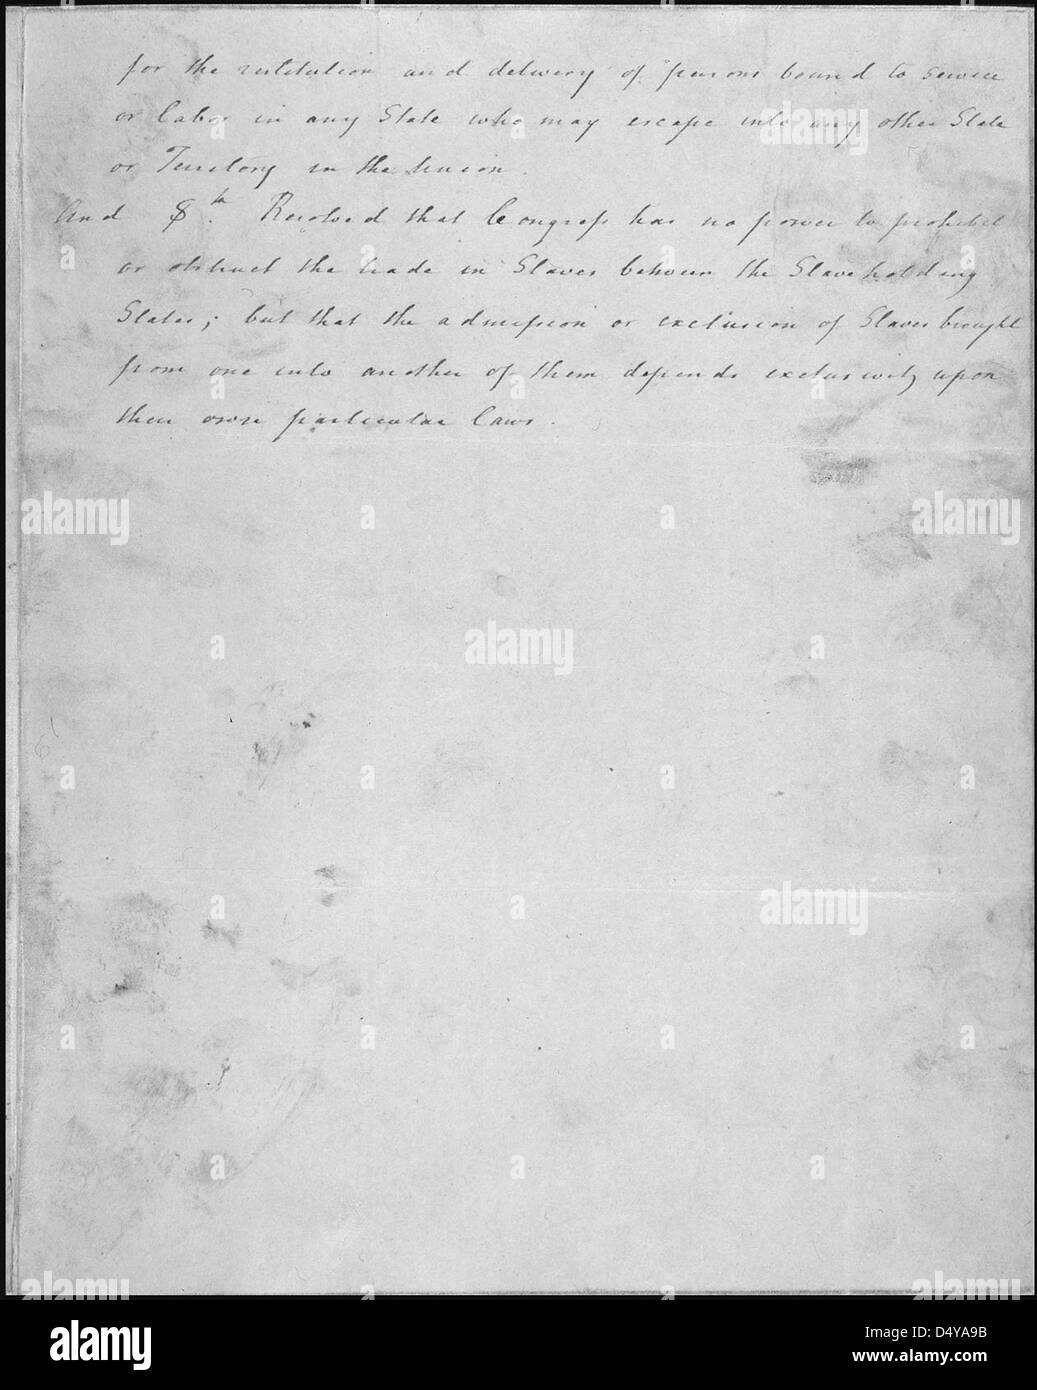 for the restitution and delivery of persons bound to service
or labor in any State who may escape into any other State
or Territory in the Union.
And 8th. Resolved that Congress has no power to prohibit
or obstruct the trade in Slaves between the Slaveholding
States; but that the admission or exclusion of Slaves brought
from one into another of them depends exclusively upon
their own particular laws.
alamy
alamy
alamy
alamy
alamy
alamy
alamy
Image ID: D4YA9B
www.alamy.com